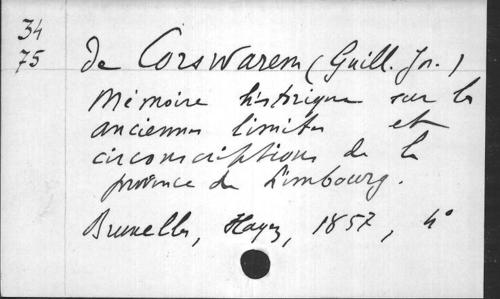 34
75
de Corswarem (Guill. Jos.)
Mémoire historique sur les
anciennes limites et
circonscriptions de la
province de Limbourg.
Bruxelles, Hayez, 1857, 4°